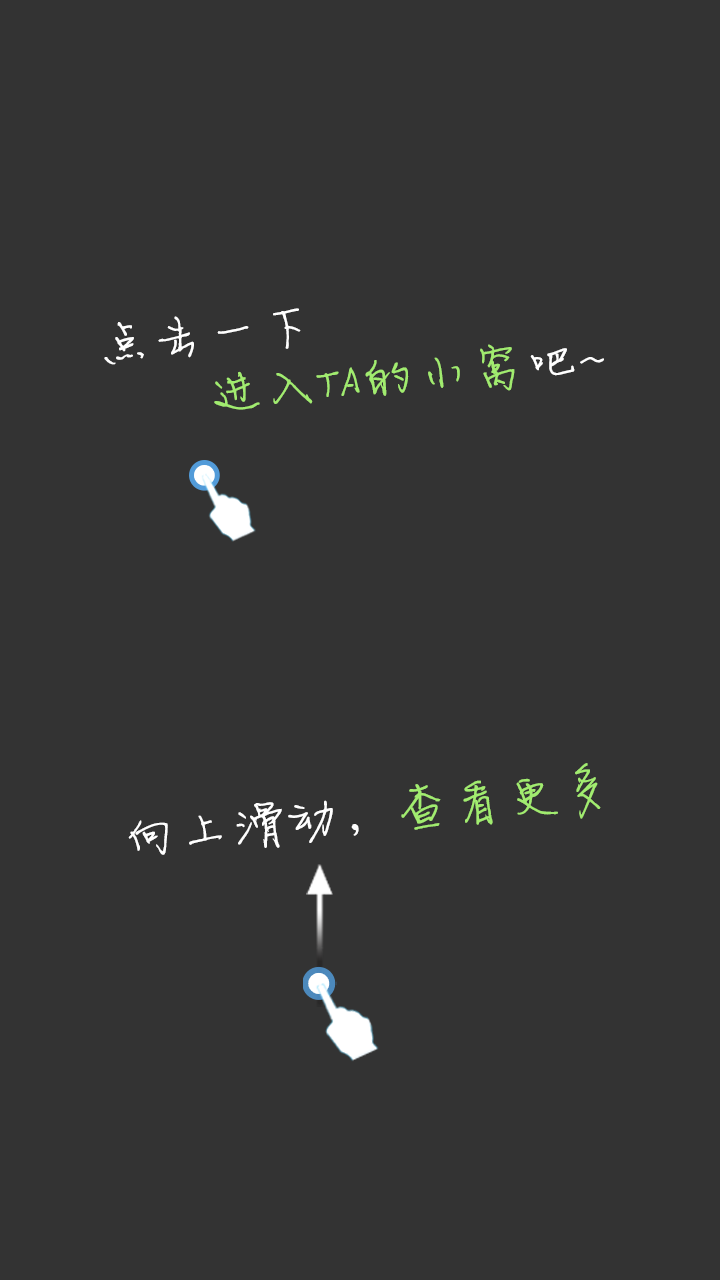 点击一下
进入TA的小窝吧~
向上滑动，查看更多